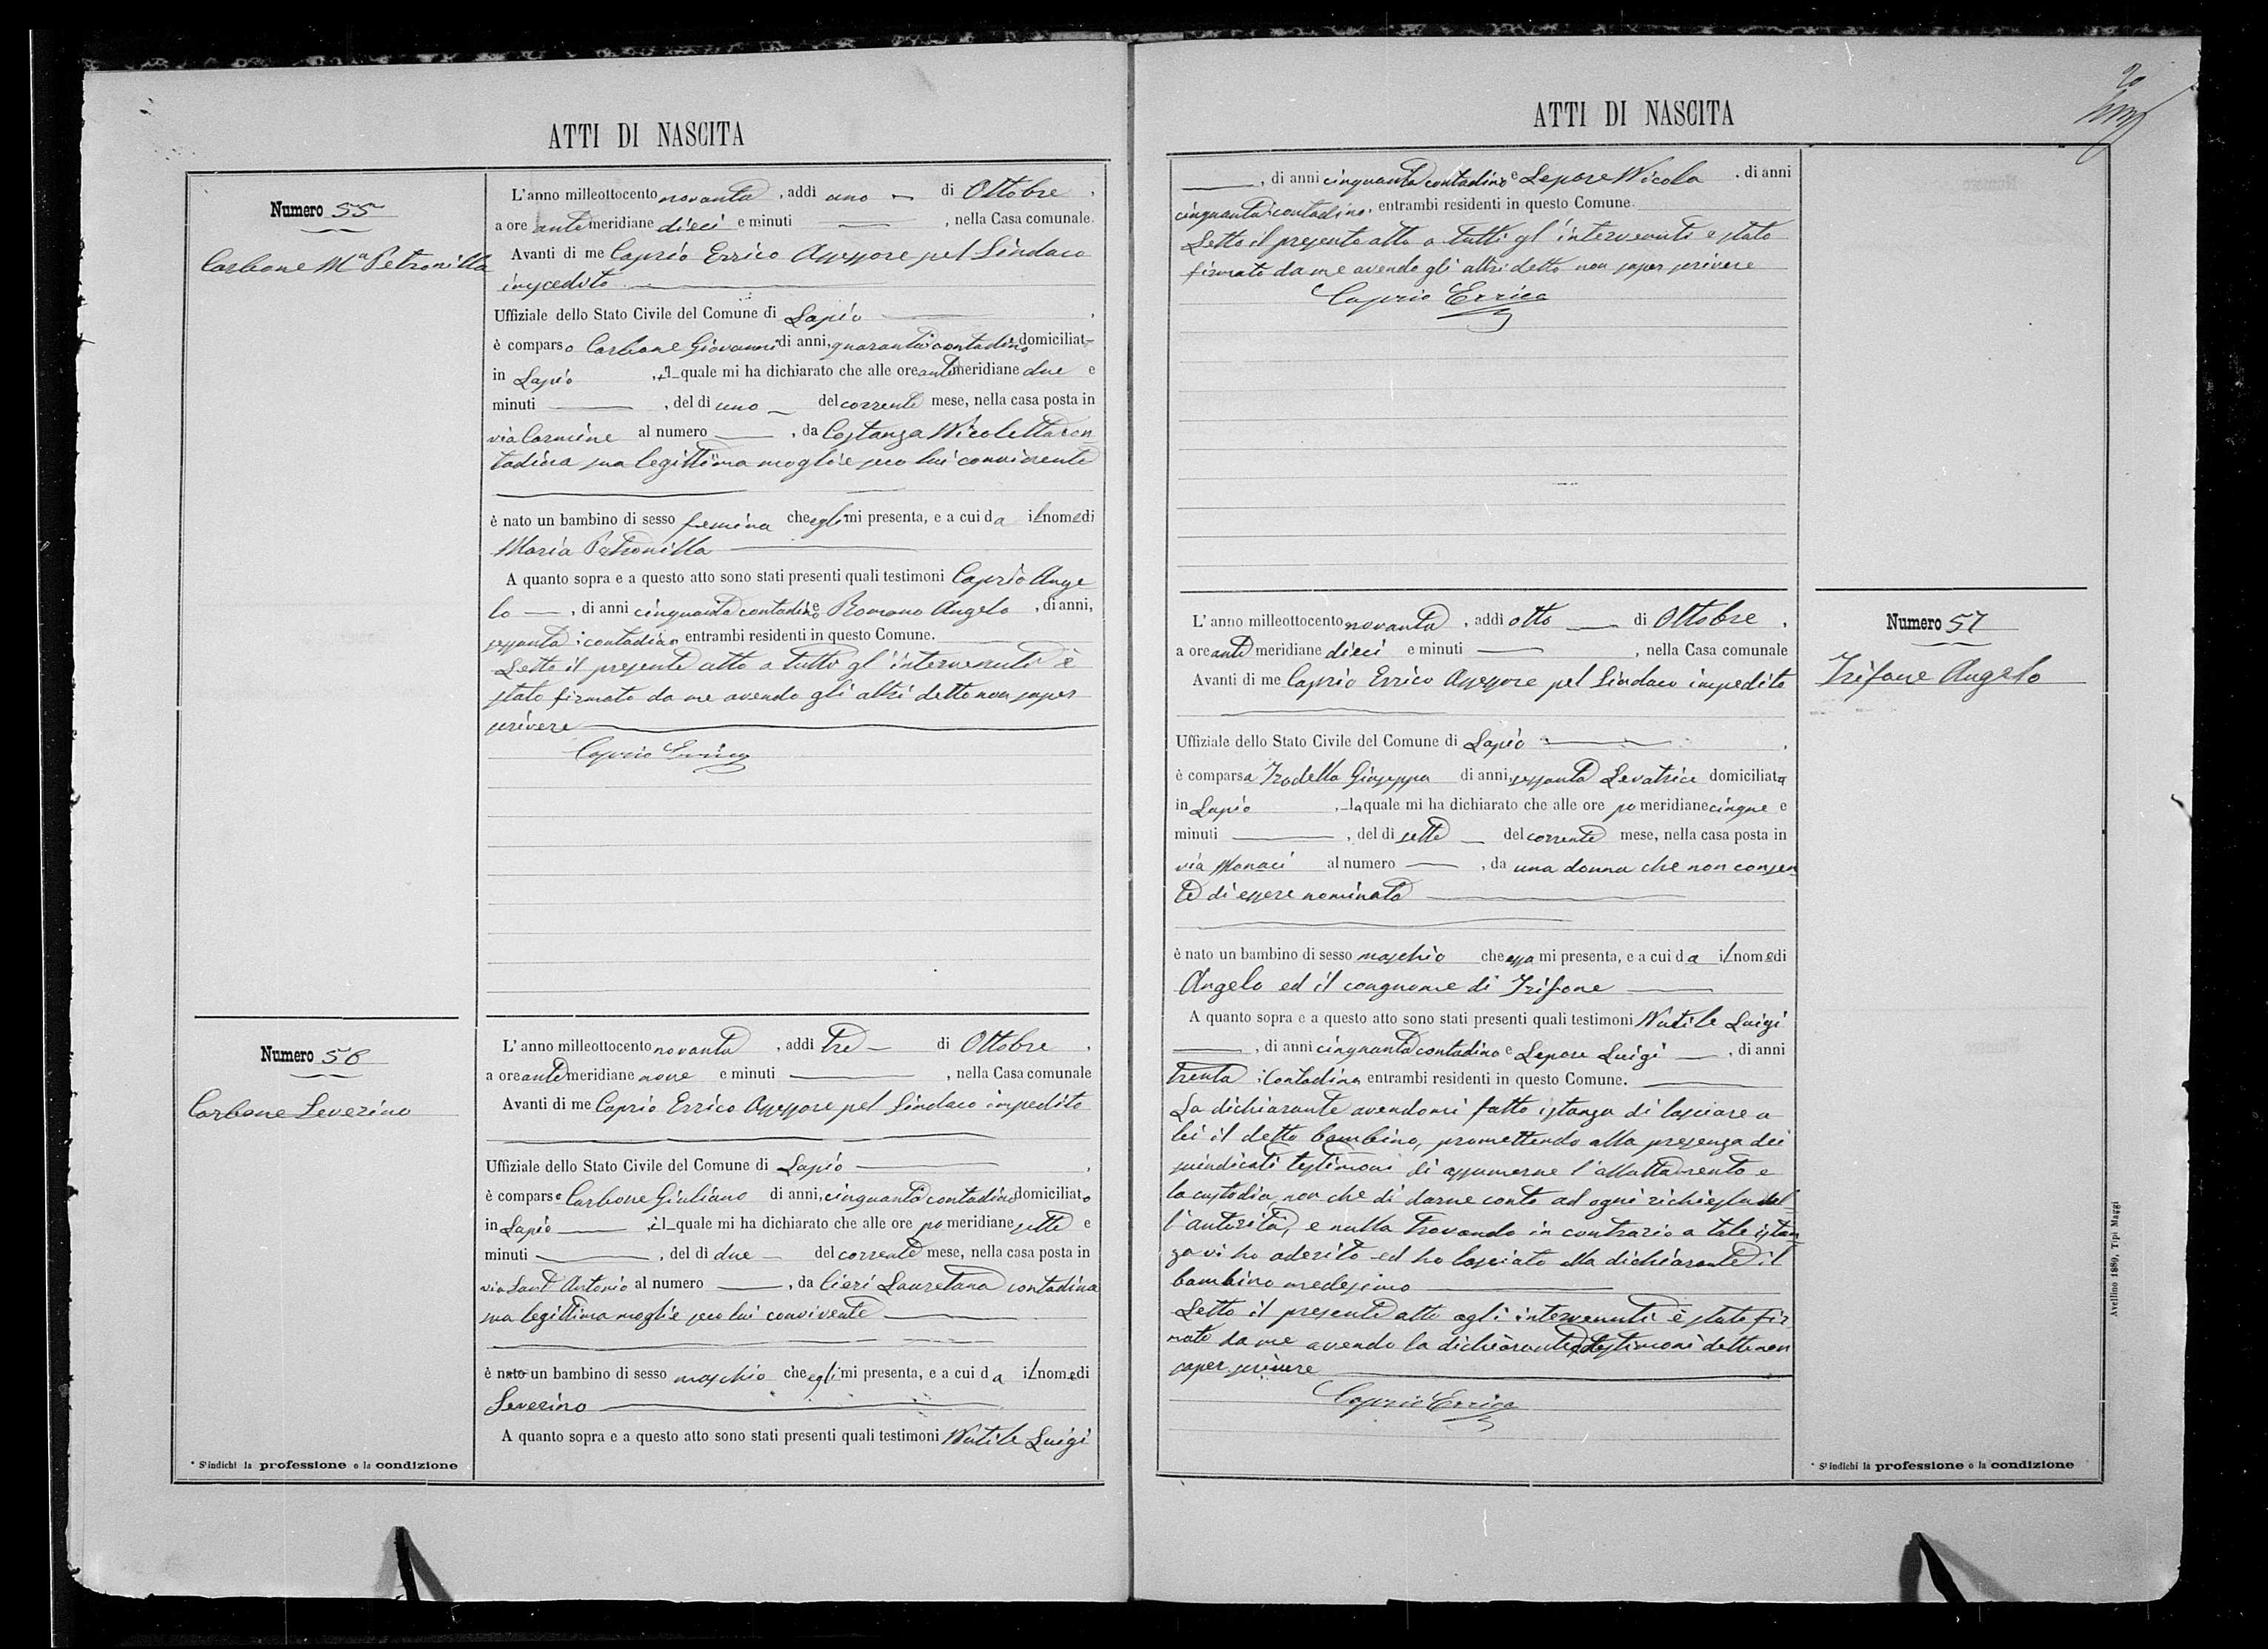 ATTI DI NASCITA
Numero 55
Carbone Ma Petronilla
L'anno milleottocento novanta, addì uno — di Ottobre,
a ore antemeridiane dieci e minuti ——, nella Casa comunale.
Avanti di me Caprio Errico Assessore pel Sindaco
impedito
Uffiziale dello Stato Civile del Comune di Lapio ——,
è comparso Carbone Giovanni di anni, quaranta contadino domiciliat-
in Lapio, il quale mi ha dichiarato che alle ore antemeridiane due e
minuti ——, del dì uno — del corrente mese, nella casa posta in
via Carmine al numero ——, da Costanza Nicoletta con
tadina sua legittima moglie seco lui convivente
è nato un bambino di sesso femina che egli mi presenta, e a cui da il nome di
Maria Petronilla
A quanto sopra e a questo atto sono stati presenti quali testimoni Caprio Ange
lo —, di anni cinquanta contadino e Romano Angelo, di anni,
sessanta contadino entrambi residenti in questo Comune.
Letto il presente atto a tutti gl'intervenuti è
stato firmato da me avendo gli altri detto non saper
scrivere
Caprio Errico
Numero 56
Carbone Severino
L'anno milleottocento novanta, addì tre — di Ottobre,
a ore antemeridiane nove e minuti ——, nella Casa comunale
Avanti di me Caprio Errico Assessore pel Sindaco impedito
Uffiziale dello Stato Civile del Comune di Lapio ——,
è comparso Carbone Giuliano di anni, cinquanta contadino domiciliato
in Lapio ——, il quale mi ha dichiarato che alle ore pomeridiane sette e
minuti ——, del dì due — del corrente mese, nella casa posta in
via Sant'Antonio al numero ——, da Cieri Lauretana contadina
sua legittima moglie seco lui convivente
è nato un bambino di sesso maschio che egli mi presenta, e a cui da il nome di
Severino
A quanto sopra e a questo atto sono stati presenti quali testimoni Nutile Luigi
* S'indichi la professione o la condizione
ATTI DI NASCITA
20
——, di anni cinquanta contadino e Lepore Nicola, di anni
cinquanta contadino, entrambi residenti in questo Comune.
Letto il presente atto a tutti gl'intervenuti e stato
firmato da me avendo gli altri detto non saper scrivere
Caprio Errico
Numero 57
Trifone Angelo
L'anno milleottocento novanta, addì otto — di Ottobre,
a ore antemeridiane dieci e minuti ——, nella Casa comunale
Avanti di me Caprio Errico Assessore pel Sindaco impedito
Uffiziale dello Stato Civile del Comune di Lapio ——,
è comparsa Trodella Giuseppa di anni, sessanta Levatrice domiciliata
in Lapio, la quale mi ha dichiarato che alle ore pomeridiane cinque e
minuti ——, del dì sette — del corrente mese, nella casa posta in
via Monaci al numero ——, da una donna che non consen
te di essere nominata
è nato un bambino di sesso maschio che essa mi presenta, e a cui da il nome di
Angelo ed il congnome di Trifone
A quanto sopra e a questo atto sono stati presenti quali testimoni Nutile Luigi
——, di anni cinquanta contadino e Lepore Luigi —, di anni
trenta contadino entrambi residenti in questo Comune.
La dichiarante avendomi fatto istanza di lasciare a
lei il detto bambino, promettendo alla presenza dei
suindicati testimoni di assumerne l'allattamento e
la custodia, non che di darne conto ad ogni richiesta del-
l'autorità, e nulla trovando in contrario a tale istan
za vi ho aderito ed ho lasciato alla dichiarante il
bambino medesimo
Letto il presente atto agli intervenuti è stato fir
mato da me avendo la dichiarante e testimoni detto non
saper scrivere
Caprio Errico
* S'indichi la professione o la condizione
Avellino 1889, Tipi Maggi